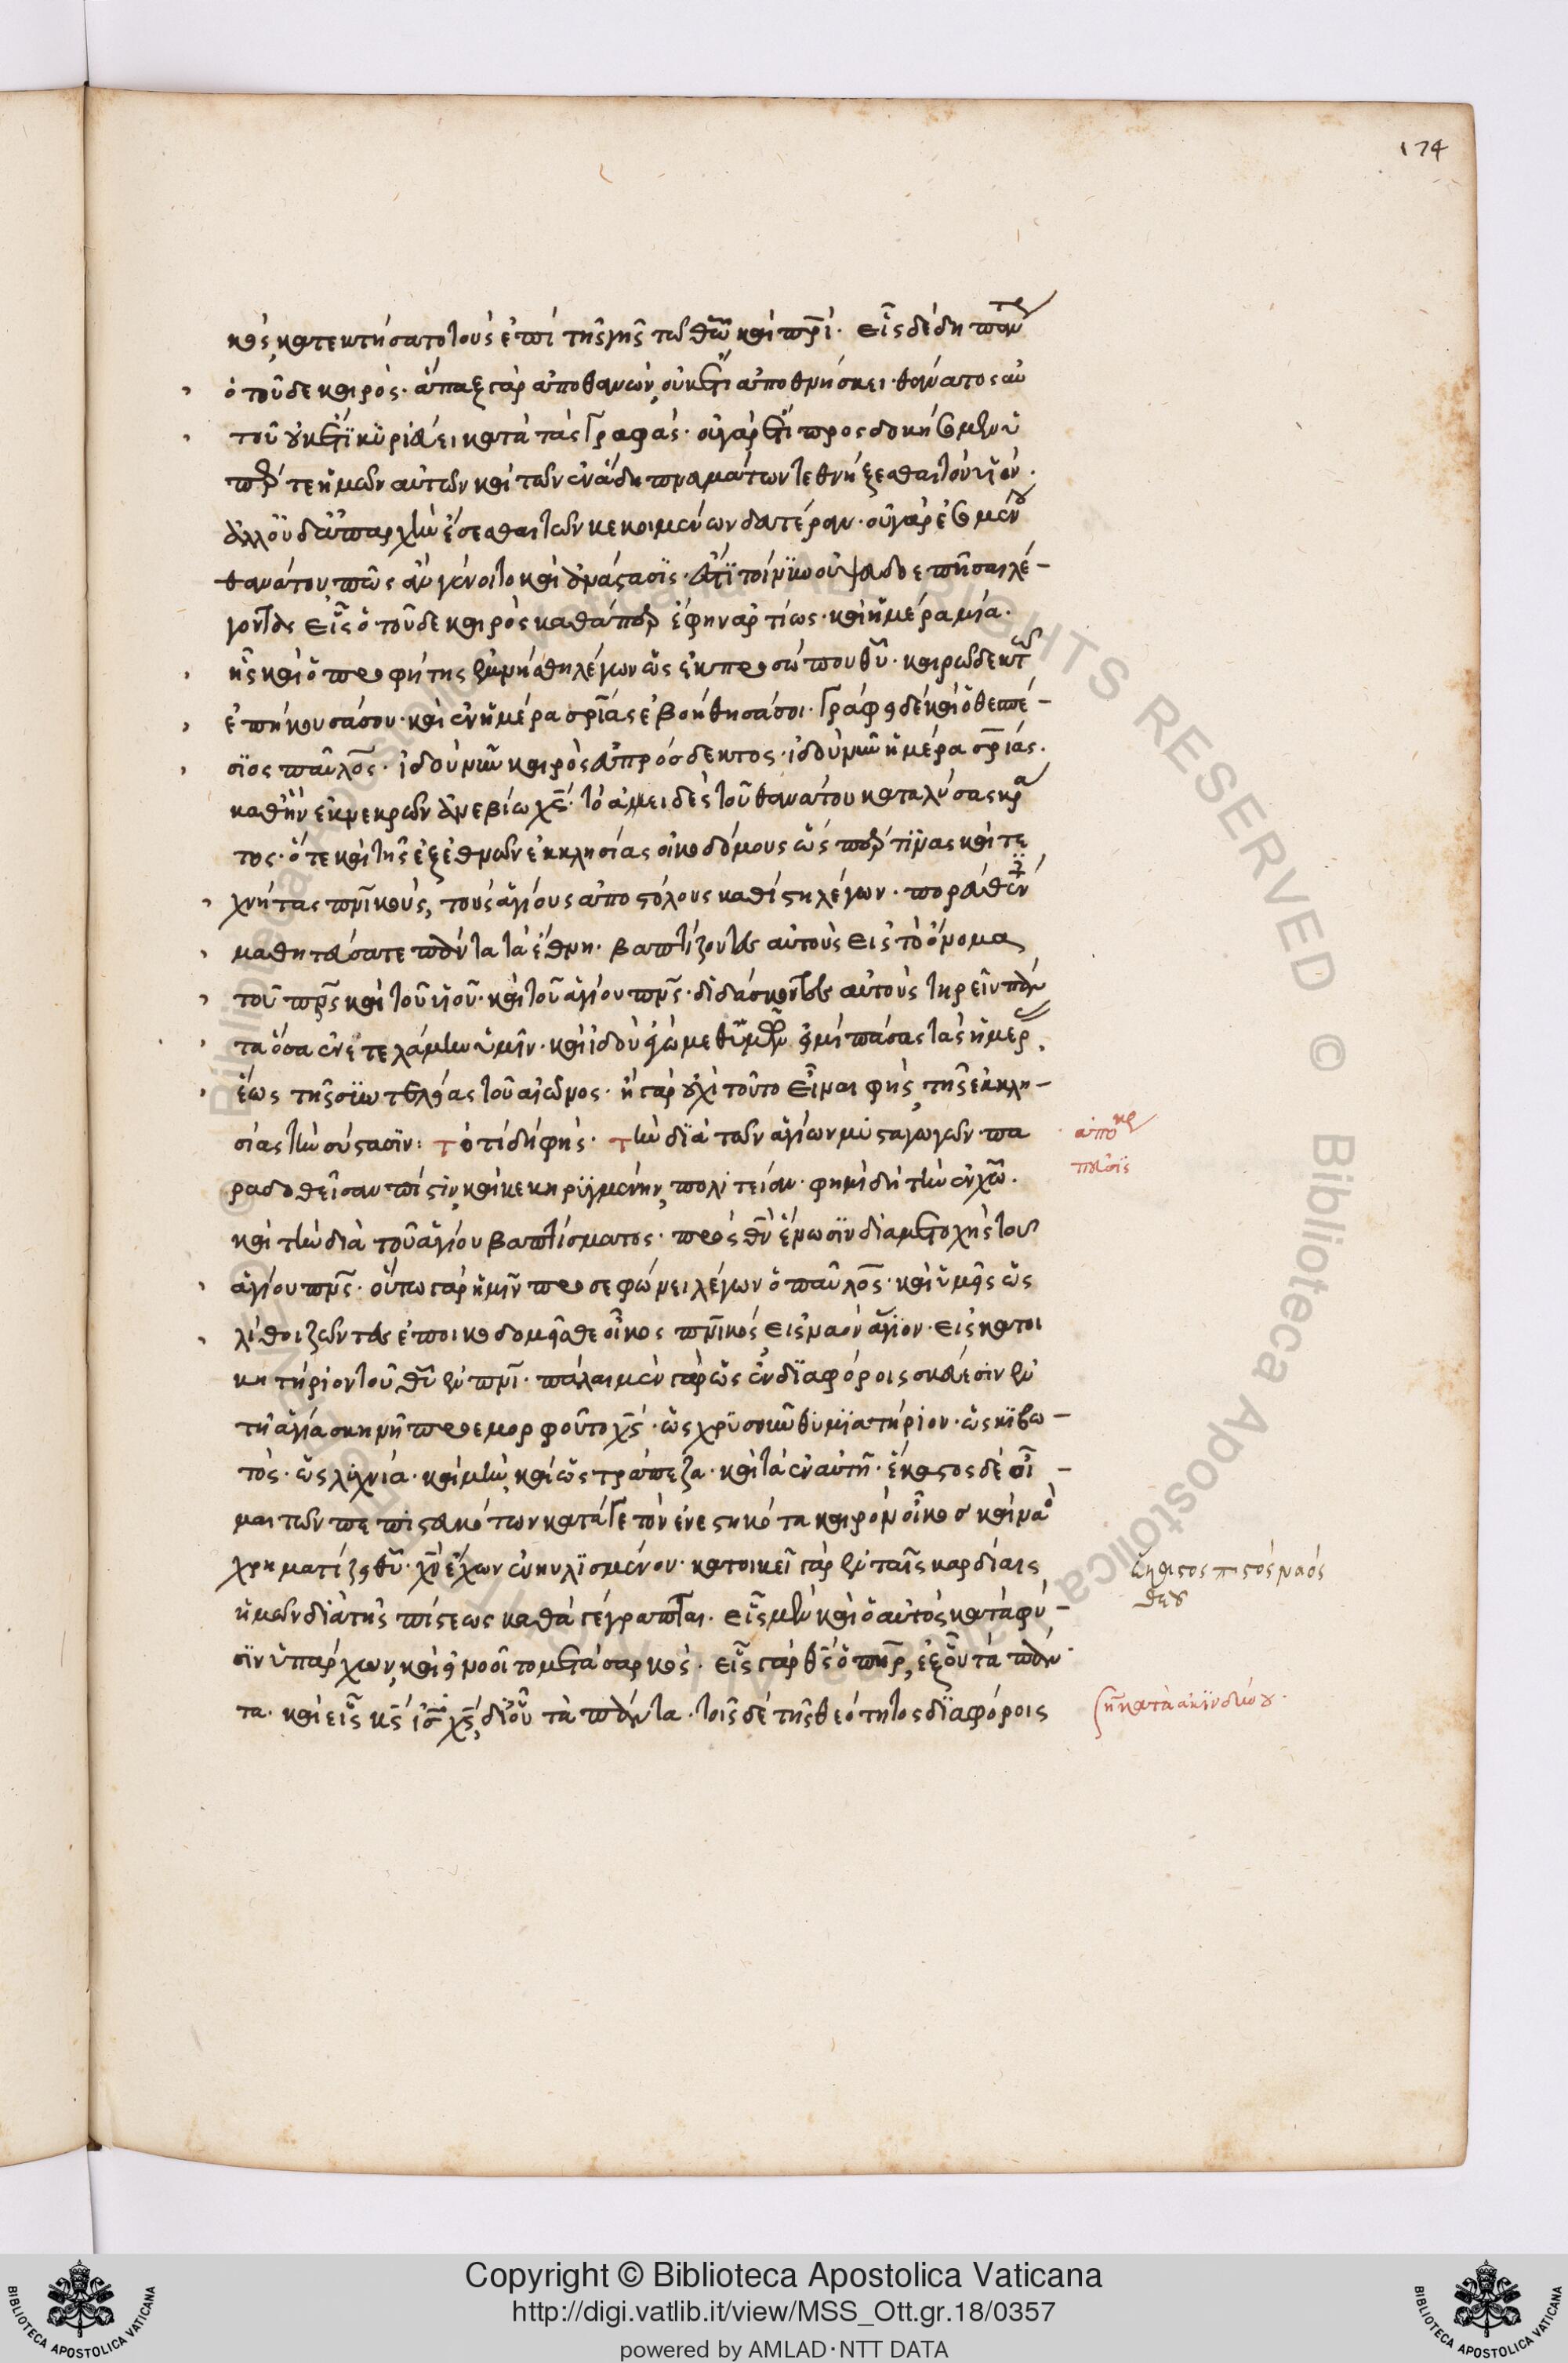 174
κός, κατεκτήσατο τοὺς ἐπὶ τῆς γῆς τῶ θω καὶ πρι· εἷς δὲ δὴ πάντ
ὁ τοῦδε καιρός· ἅπαξ γὰρ ἀποθανών, οὐκέτι ἀποθνήσκει· θάνατος αὐ
τοῦ οὐκέτι κυριεύει κατὰ τὰς γραφάς· οὐ γὰρ ἔτι προσδοκήσομεν ὑ
πέρ τε ἡμῶν αὐτῶν καὶ τῶν ἐν ἅδη πνευμάτων τεθνήξεσθαι τὸν υἱόν·
ἀλλ' οὐδ' ἀπαρχὴν ἔσεσθαι τῶν κεκοιμένων δευτέραν· οὐ γὰρ
θανάτου, πῶς ἂν γένοιτο καὶ ἀνάστασις· ἔτι τοίνυν οὐ ψεῦδος ποιῆσαι λέ-
γοντας εἷς ὁ τοῦδε καιρὸς καθάπερ ἔφην ἀρτίως· καὶ ἡμέρα μία·
ἧς καὶ ὁ προφήτης ἐμνήσθη λέγων ὡς ἐκ προσώπου θυ· καιρῶ δεκτῶ
ἐπήκουσά σου· καὶ ἐν ἡμέρα σριας ἐβοήθησά σοι· γράφει δὲ καὶ ὁ θεσπέ-
σιος παῦλος· ἰδοὺ νῦν καιρὸς εὐπρόσδεκτος· ἰδοὺ νῦν ἡμέρα σριας·
καθ' ἣν ἐκ νεκρῶν ἀνεβίω χς· τὸ ἀμειδὲς τοῦ θανάτου καταλύσας κρά
τος· ὅτε καὶ τῆς ἐξ ἐθνῶν ἐκκλησίας οἰκοδόμους ὥσπερ τινας καὶ τε
χνήτας πνικούς, τοὺς ἁγίους ἀποστόλους καθίστη λέγων· πορευθέντες
μαθητεύσατε πάντα τὰ ἔθνη· βαπτίζοντες αὐτοὺς εἰς τὸ ὄνομα
τοῦ πρς καὶ τοῦ υἱοῦ· καὶ τοῦ ἁγίου πνς· διδάσκοντες αὐτοὺς τηρεῖν πάν
τα ὅσα ἐνετειλάμην ὑμῖν· καὶ ἰδοὺ ἐγὼ μεθ' ὑμῶν εἰμὶ πάσας τὰς ἡμέρας,
ἕως τῆς συντελείας τοῦ αἰῶνος· ἢ γὰρ οὐχὶ τοῦτο εἶναι φής, τῆς ἐκκλη-
σίας τὴν σύστασιν: τὸ τί δὴ φής· τὴν διὰ τῶν ἁγίων μυσταγωγῶν· πα
ραδοθεῖσαν πίστιν, καὶ κεκηρυγμένην, πολιτείαν· φημὶ δὴ τὴν ἐν χω·
καὶ τὴν διὰ τοῦ ἁγίου βαπτίσματος· πρὸς θν ἕνωσιν διὰ μετοχῆς τοῦ
ἁγίου πνς· οὕτω γὰρ ἡμῖν προσεφώνει λέγων ὁ παῦλος· καὶ ὑμεῖς ὡς
λίθοι ζῶντες ἐποικοδομεῖσθε οἶκος πνικός, εἰς ναὸν ἅγιον· εἰς κατοι
κητήριον τοῦ θυ ἐν πνι· πάλαι μὲν γὰρ ὡς ἐν διαφόροις σκεύεσιν ἐν
τῆ ἁγία σκηνῆ προεμορφοῦτο χς· ὡς χρυσοῦν θυμιατήριον· ὡς κιβω-
τός· ὡς λυχνία· καὶ μὴν, καὶ ὡς τράπεζα· καὶ τὰ ἐν αὐτῆ· ἕκαστος δὲ οἶ-
μαι τῶν πεπιστευκότων κατά γε τὸν ἐνεστηκότα καιρὸν οἶκος καὶ ναὸ
χρηματίζει θυ· χν ἔχων ἐνηυλισμένον· κατοικεῖ γὰρ ἐν ταῖς καρδίαις
ἡμῶν διὰ τῆς πίστεως καθὰ γέγραπται· εἷς μὲν καὶ ὁ αὐτὸς κατὰ φύ-
σιν ὑπάρχων, καὶ εἰ νοοῖτο μετὰ σαρκός· εἷς γὰρ θς ὁ πηρ, ἐξ οὗ τὰ πάν
τα· καὶ εἷς κς ις χς, δι' οὗ τὰ πάντα· τοῖς δὲ τῆς θεότητος διαφόροις
ἀπο
ἕκαστος πιστὸς ναός
θεοῦ
κατὰ ἀκινδύνου·
Copyright © Biblioteca Apostolica Vaticana
http://digi.vatlib.it/view/MSS_Ott.gr.18/0357
powered by AMLAD·NTT DATA
BIBLIOTECA APOSTOLICA VATICANA
BIBLIOTECA APOSTOLICA VATICANA